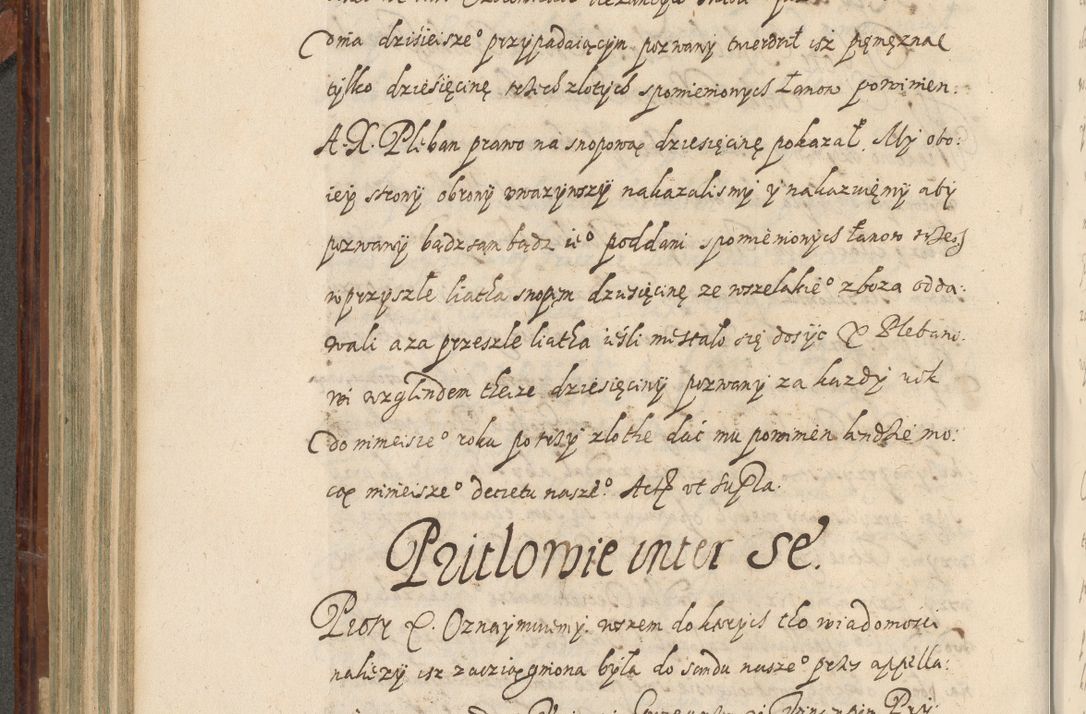 dnia dzisieisze° przypadaiącym pozwany twierdził isz pęnęznae
tylko dziesięcinę trzech złotych spomienionych Łanow powinien:
A. X. Pleban prawo na snopową dziesięcinę pokazał. My obo:
iey strony obrony uwazywszy nakazalismy y nakazuięmy aby
pozwany bądz sam bądz ie° poddani spomienionych Łanow trzech
w przyszłe liatha snopęm dziesięcinę ze wszelakie° zboza odda:
wali a za przeszłe liatha ieśli nie stało się dosyc X Plebano:
wi wzglindem theize dziesięciny pozwany za kazdy rok
do ninieisze° roku po trzy zlothe dać mu powinien bndzie mo:
cą ninieisze° decretu nasze°. Act ut supra.
Pritlowie inter se.
Piotr X. Oznaymuiemy. wszem do ktorych tho wiadomosci
nalieży isz zaciągniona była do sandu nasze° przes appella: